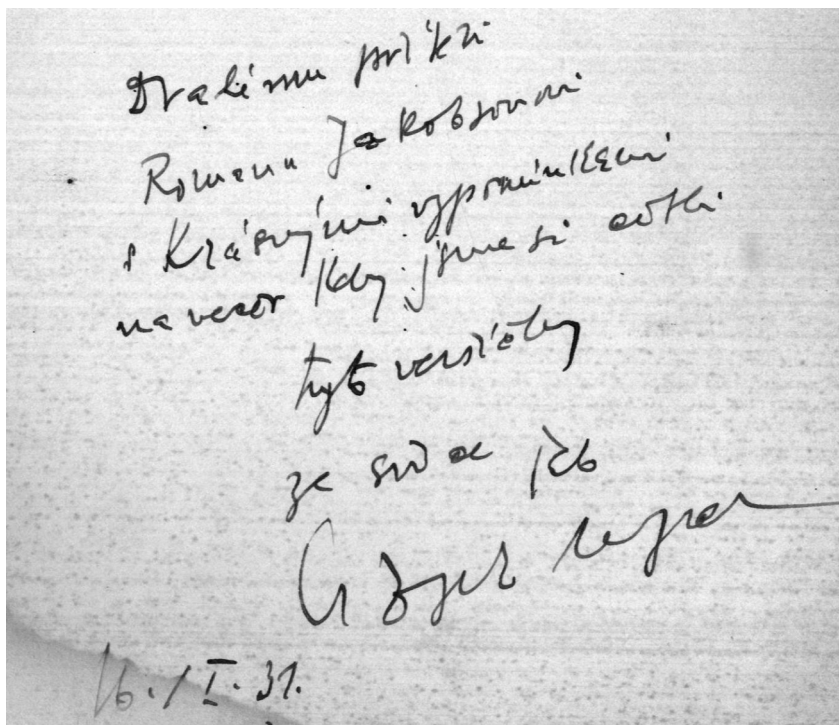 Drahému příteli
Romanu Jakobsonovi
s krásnými vzpomínkami
na večer kdy jsme si četli
tyto veršíčky
ze srdce jeho
16./I. 31.